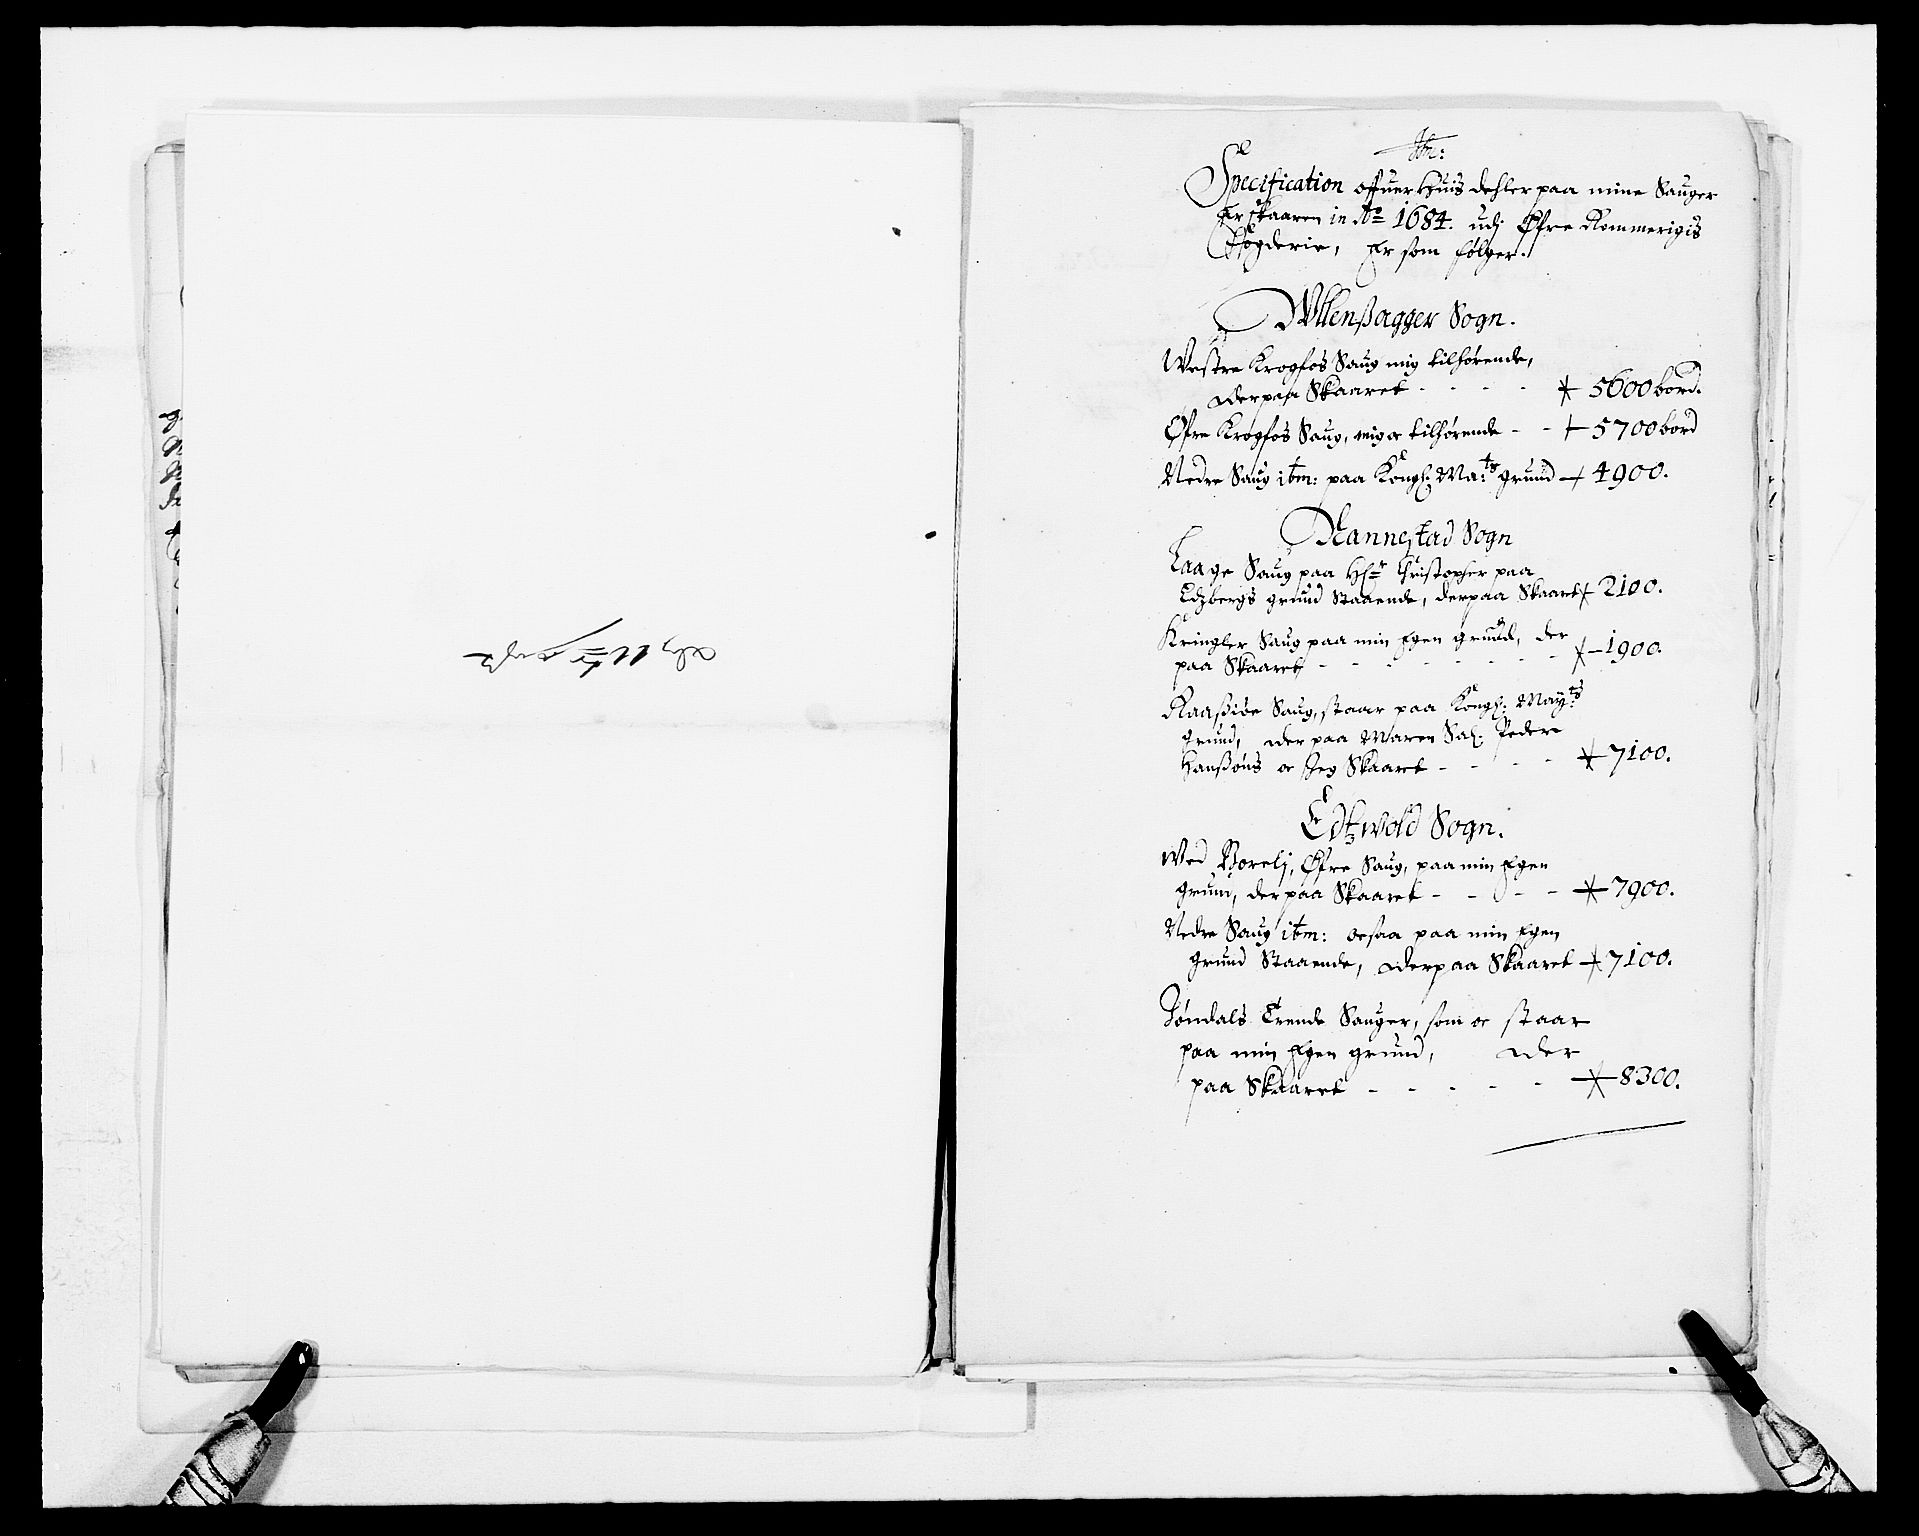 Itm:
Specification offuer Huis dehler paa mine Sauger
Er skaaren in Ao 1684. udj Øfre Rommerigis
Fogderie, Er som følger.
Ullensagger Sogn.
Westre Krogfos Saug mig tilhørende,
derpaa Skaaret - - - - 5600 bord.
Øfre Krogfos Saug, mig oc tilhørende - - 5700 bord
Nedre Saug itm: paa Kongl: Ma:ts grund 4900.
Nannestad Sogn
Laage Saug paa Hr Christopher paa
Edzbergs grund Staaende, derpaa Skaaret 2100.
Kringler Saug paa min Egen grund, der
paa Skaaret - - - - - - 1900.
Raasiøe Saug, staar paa Kongl: May:ts
grund, der paa Maren Sal: Peder
Hanßøns oc Jeg Skaaret - - - - 7100.
Edtzwold Sogn.
Wed Borelj, Øfre Saug, paa min Egen
grund, der paa Skaaret - - - - 7900.
Nedre Saug itm: ocsaa paa min Egen
grund Staaende, derpaa Skaaret 7100.
Jøndals Trende Sauger, som oc staar
paa min Egen grund, der
paa Skaaret - - - - - 8300.